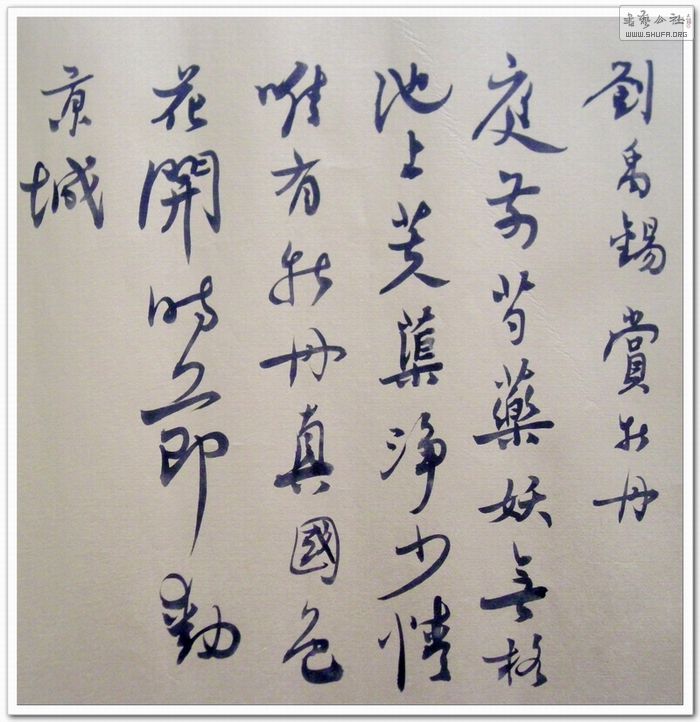 劉禹錫 賞牡丹
庭前芍藥妖無格
池上芙蕖淨少情
唯有牡丹真國色
花開時節動
京城
書藝公社
WWW.SHUFA.ORG